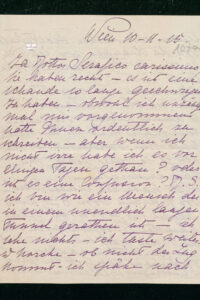 Wien 10-11-05
La Mottre Serafico carissimo
Sie haben recht - es ist eine
Schande so lange geschwiegen
zu haben - obwol ich
mal mir vorgenommen
hatte Ihnen ordentlich zu
schreiben - aber wenn ich
nicht irre habe ich es vor
einigen Tagen gethan? oder
ist es eine Confusion?
ich bin wie ein Mensch der
in einem unendlich langen
Tunnel gerathen ist - ich
sehe nichts - ich taste weiter
u horche - ob nicht der Zug
kommt - ich spähe nach